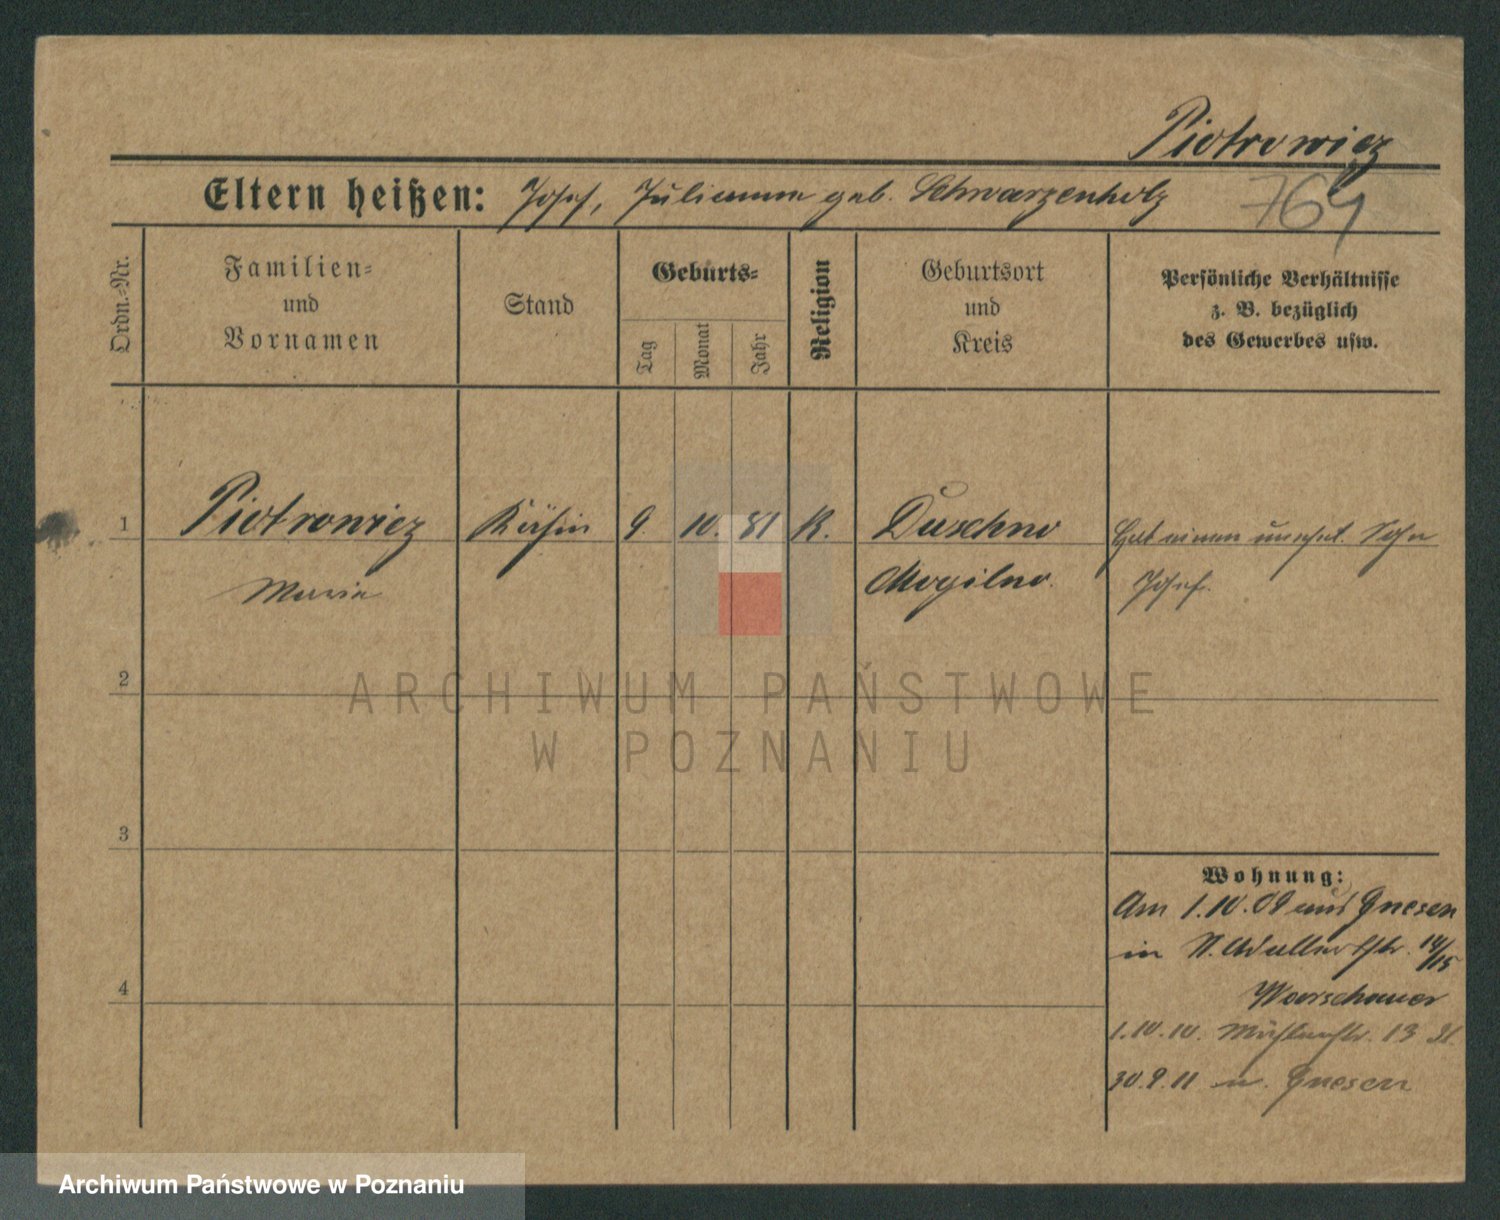 Piotrowicz
Eltern heißen: Josef, Julianna geb. Schwarzenholz
764
Ordn.-Nr.
Familien-
und
Vornamen
Stand
Geburts-
Tag
Monat
Jahr
Religion
Geburtsort
und
Kreis
Persönliche Verhältnisse
z. B. bezüglich
des Gewerbes usw.
1 Piotrowicz Köchin 9. 10. 81 K. Duschno Hat einen unehel. Sohn
Maria Mogilno. Josef.
2
ARCHIWUM PAŃSTWOWE
W POZNANIU
3
Wohnung:
Am 1.10.09 aus Gnesen
in 14/15
Warschauer
4
1.10.10. Mühlenstr. 13
30.9.11 n. Gnesen
Archiwum Państwowe w Poznaniu